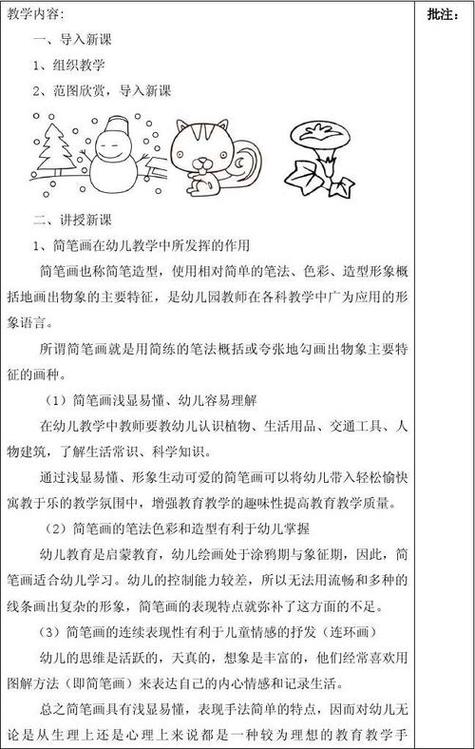 教学内容:
批注:
一、导入新课
1、组织教学
2、范图欣赏，导入新课
二、讲授新课
1、简笔画在幼儿教学中所发挥的作用
简笔画也称简笔造型，使用相对简单的笔法、色彩、造型形象概
括地画出物象的主要特征，是幼儿园教师在各科教学中广为应用的形
象语言。
所谓简笔画就是用简练的笔法概括或夸张地勾画出物象主要特
征的画种。
（1）简笔画浅显易懂、幼儿容易理解
在幼儿教学中教师要教幼儿认识植物、生活用品、交通工具、人
物建筑，了解生活常识、科学知识。
通过浅显易懂、形象生动可爱的简笔画可以将幼儿带入轻松愉快
寓教于乐的教学氛围中，增强教育教学的趣味性提高教育教学质量。
（2）简笔画的笔法色彩和造型有利于幼儿掌握
幼儿教育是启蒙教育，幼儿绘画处于涂鸦期与象征期，因此，简
笔画适合幼儿学习。幼儿的控制能力较差，所以无法用流畅和多种的
线条画出复杂的形象，简笔画的表现特点就弥补了这方面的不足。
（3）简笔画的连续表现性有利于儿童情感的抒发（连环画）
幼儿的思维是活跃的，天真的，想象是丰富的，他们经常喜欢用
图解方法（即简笔画）来表达自己的内心情感和记录生活。
总之简笔画具有浅显易懂，表现手法简单的特点，因而对幼儿无
论是从生理上还是心理上来说都是一种较为理想的教育教学手